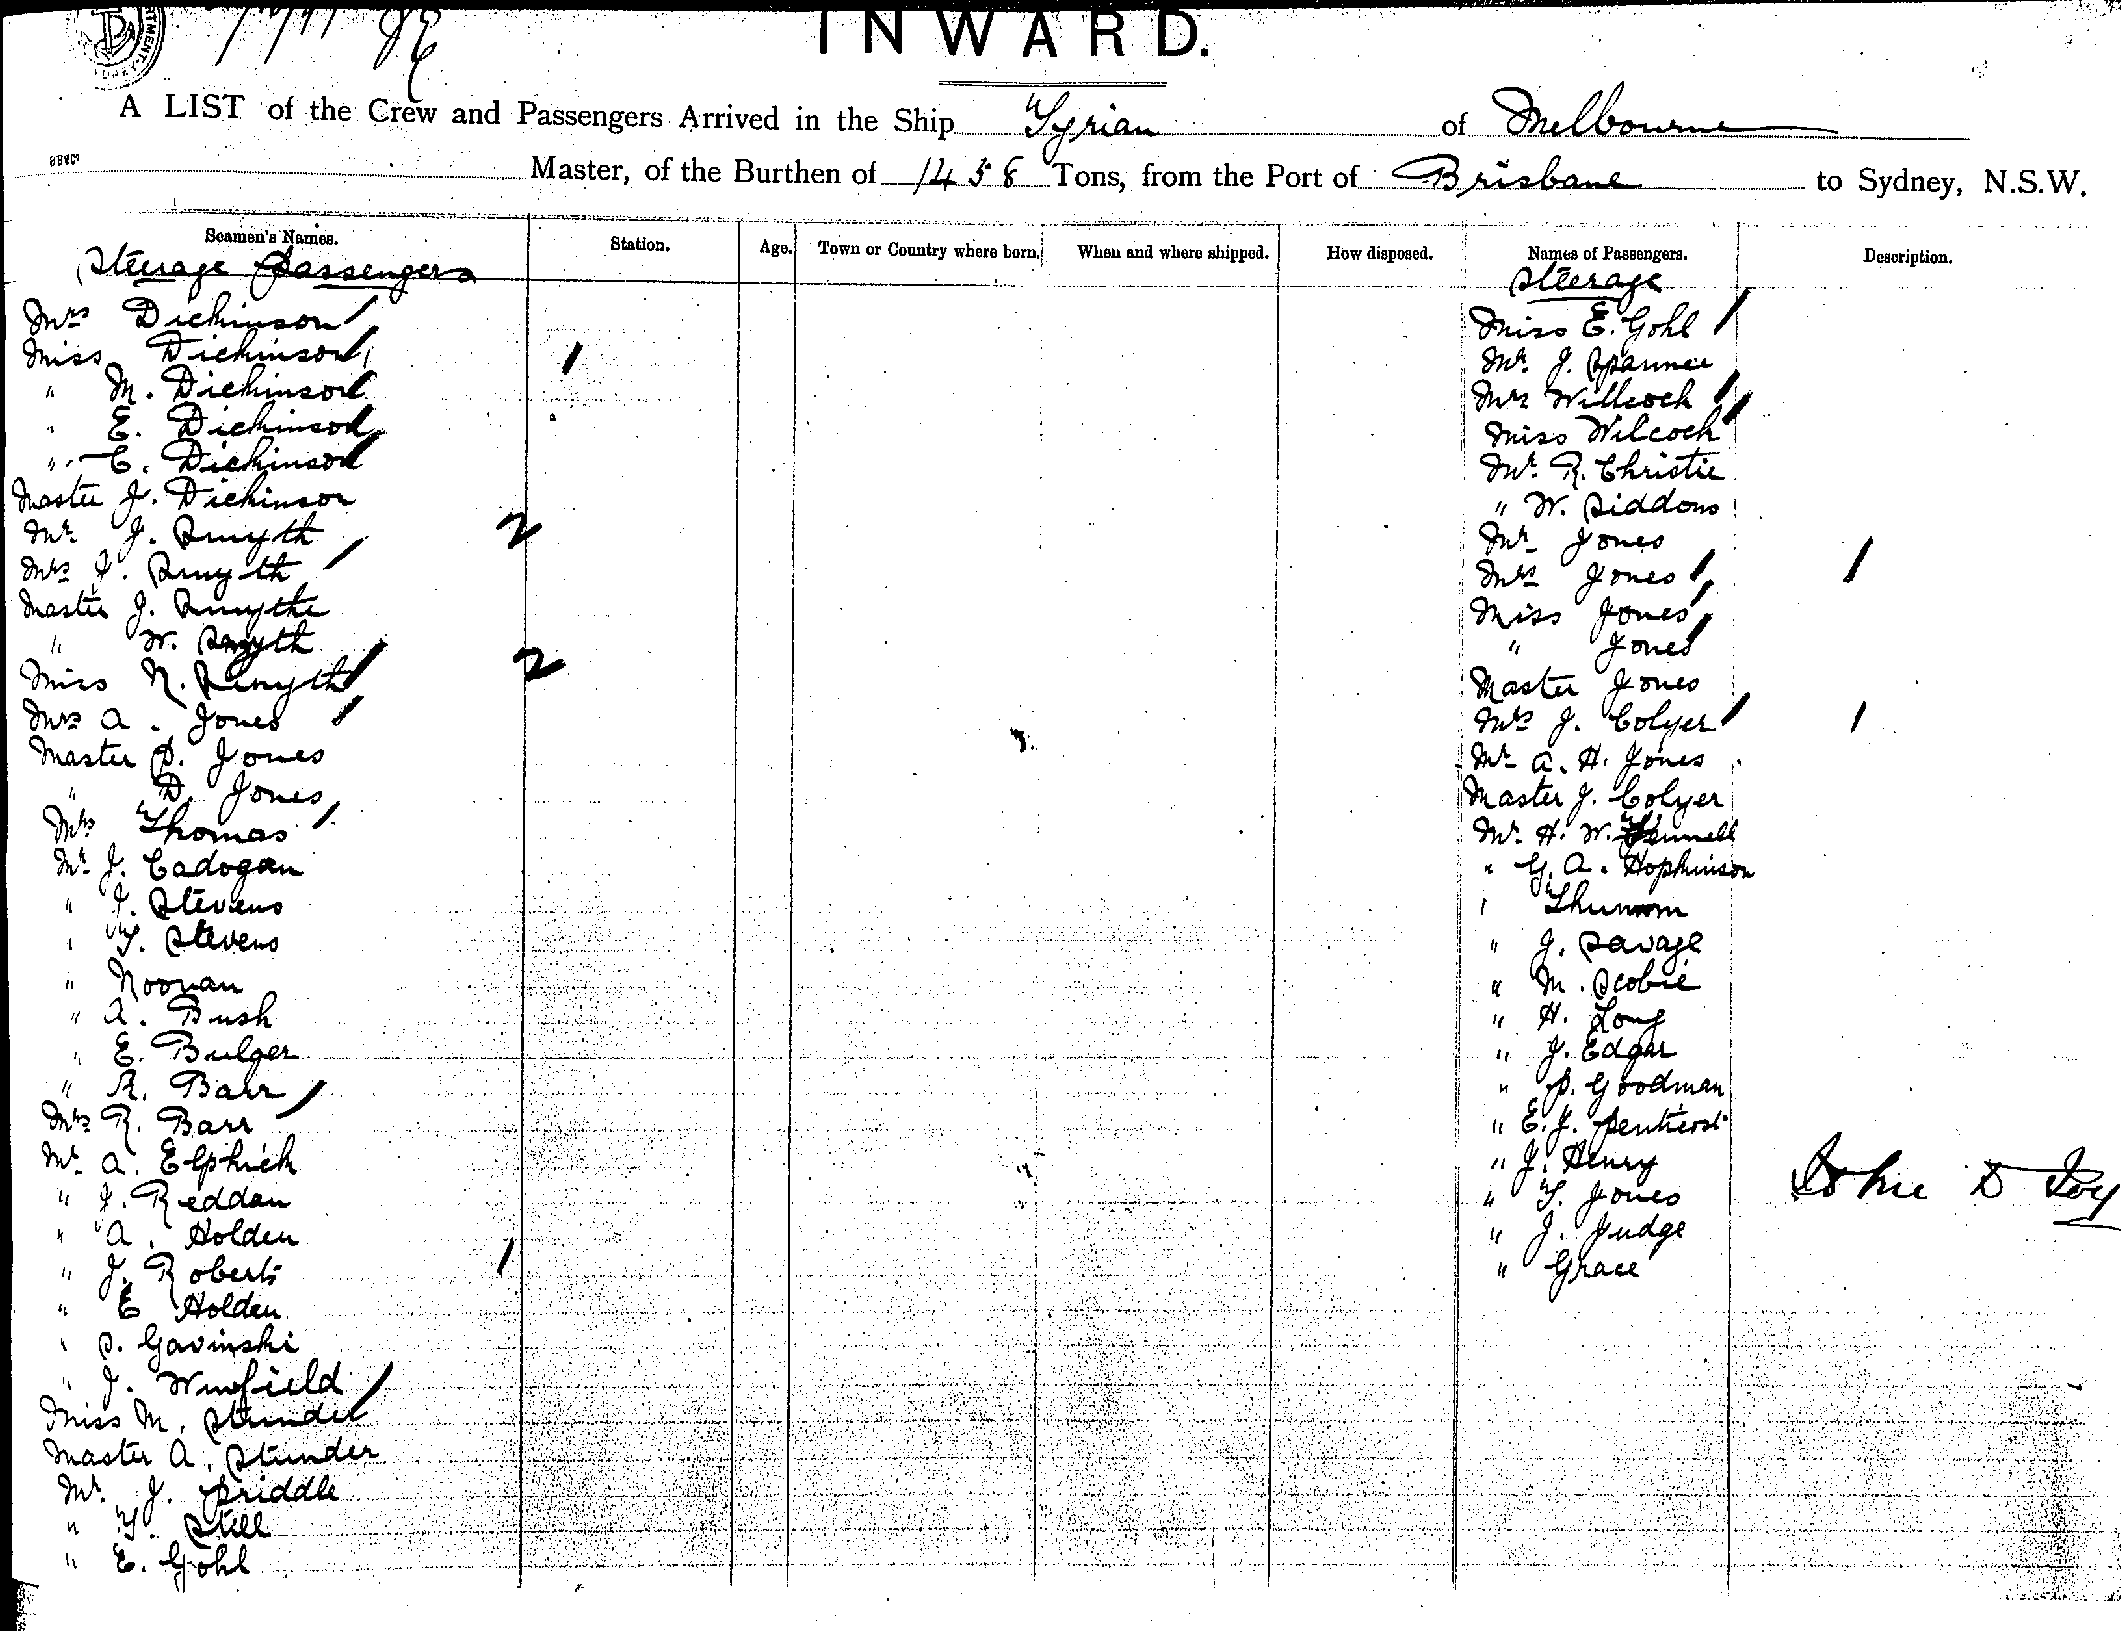 INWARD.
A LIST of the Crew and Passengers Arrived in the Ship Tyrian of Melbourne
Master, of the Burthen of 1458 Tons, from the Port of Brisbane to Sydney, N.S.W.
Seamen's Names. Station. Age. Town or Country where born. When and where shipped. How disposed. Names of Passengers. Description.
Steerage Passengers
Mrs Dickinson
Miss Dickinson 1
" M. Dickinson
" E. Dickinson
" C. Dickinson
Master J. Dickinson
Mr J. Smyth 2
Mrs J. Smyth
Master J. Smythe
" W. Smyth
Miss N. Smyth 2
Mrs A. Jones
Master S. Jones
" D. Jones
Mrs Thomas
Mr J. Cadogan
" J. Stevens
" T. Stevens
" Noonan
" A. Bush
" E. Bulger
" R. Barr
Mrs R. Barr
Mr A. Elphick
" J. Reddan
" A. Holden
" J. Roberts 1
" E Holden
" S. Gavinski
" J. Winfield
Miss M. Stunder
Master A. Stunder
Mr. J. Priddle
" T. Still
" E. Gohl
Steerage
Miss E. Gohl
Mr. J. Spannei
Mrs Willcock
Miss Wilcock
Mr. R. Christie
" W. Siddons
Mr Jones
Mrs Jones 1
Miss Jones
" Jones
Master Jones
Mrs J. Colyer 1
Mr A. H. Jones
Master J. Colyer
Mr. H. W.
" G. A. Hopkinson
"
" J. Savage
" M. Scobie
" H. Long
" J. Edgar
" S. Goodman
" E. J. Pentecost
" J. Henry
" T. Jones
" J. Judge
" Grace